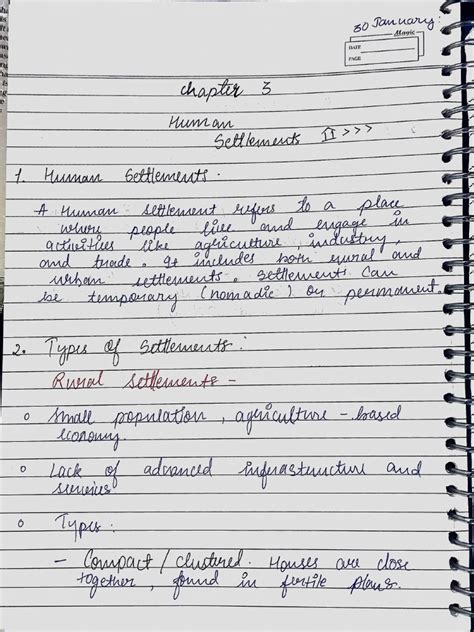 30 January:
Magic
DATE
PAGE
Chapter 3
Human
Settlements >>>
1. Human Settlements.
A Human settlement refers to a place
where people live and engage in
activities like agriculture, industry,
and trade. It includes both rural and
urban settlements. Settlements can
be temporary (nomadic) or permanent.
2. Types of Settlements:
Rural Settlements -
o Small population, agriculture - based
economy.
o Lack of advanced infrastructure and
services
o Types:
- Compact / clustered. Houses are close
together, found in fertile plans.